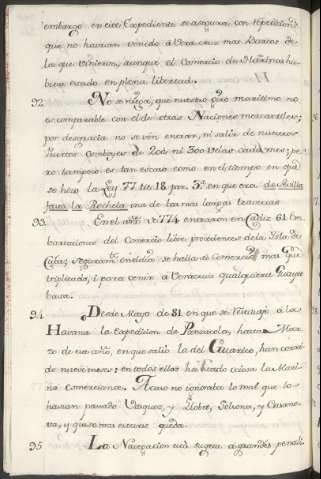 embargo en este Expediente se asegura, con repeticion,
que no havrian venido á Vera cruz mas Barcos de
la que vinieron, aunque el Comercio de Marinos hu-
biera estado en plena libertad.
92. No se niega, que nuestro giro maritimo no
es comparable con el de otras Naciones mercantiles;
por desgracia no se vén entrar, ni salir de nuestros
Puertos comboyes de 200 ni 300 velas cada mes; pe-
ro tampoco es tan escaso como en el tiempo en que
se hizo la Ley 77 titº 18 par. 3ª en que era de Sevilla
hasta la Rochela una de las mas largas travesias
93. En el año de 774 entraron en Cadiz 61 Em
barcaciones del Comercio libre, procedentes de la Isla de
Cuba, en el dia se halla el Comercio mas que
triplicado, i para venir á Veracruz qualquiera
basta.
94. Desde Mayo de 81 en que se
Havana la Expedicion de Panzacola, hasta Mar-
zo de un año, en que salio la del Guarico, han corri-
do nueve meses; en todos ellos
no Comerciante. Acaso no ignoraba lo mal que lo
havian pasado Vazquez, y Llobet, y Casano-
va, y queda
95. La Navegacion está sugeta á grandes